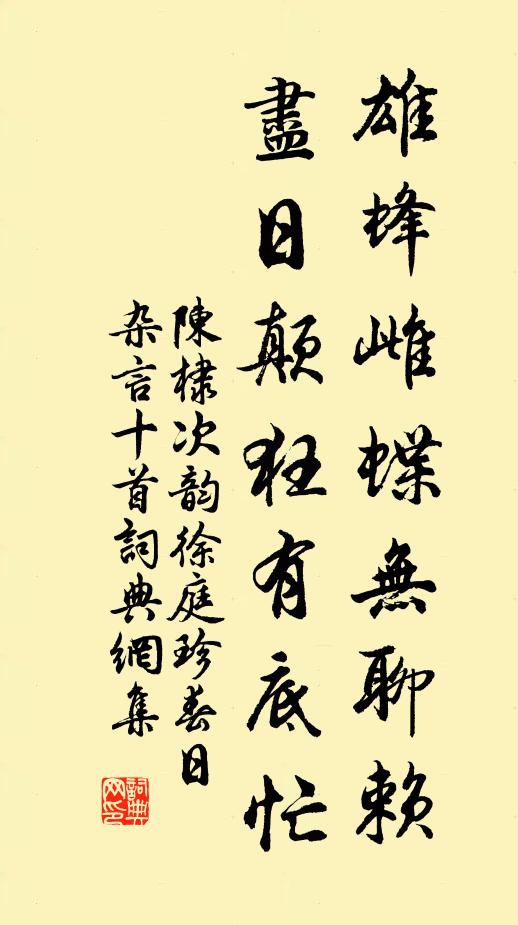 雄蜂雌蝶無聊賴
盡日顛狂有底忙
陳棣次韵徐庭珍春日
杂言十首詞典網集
詞典網印